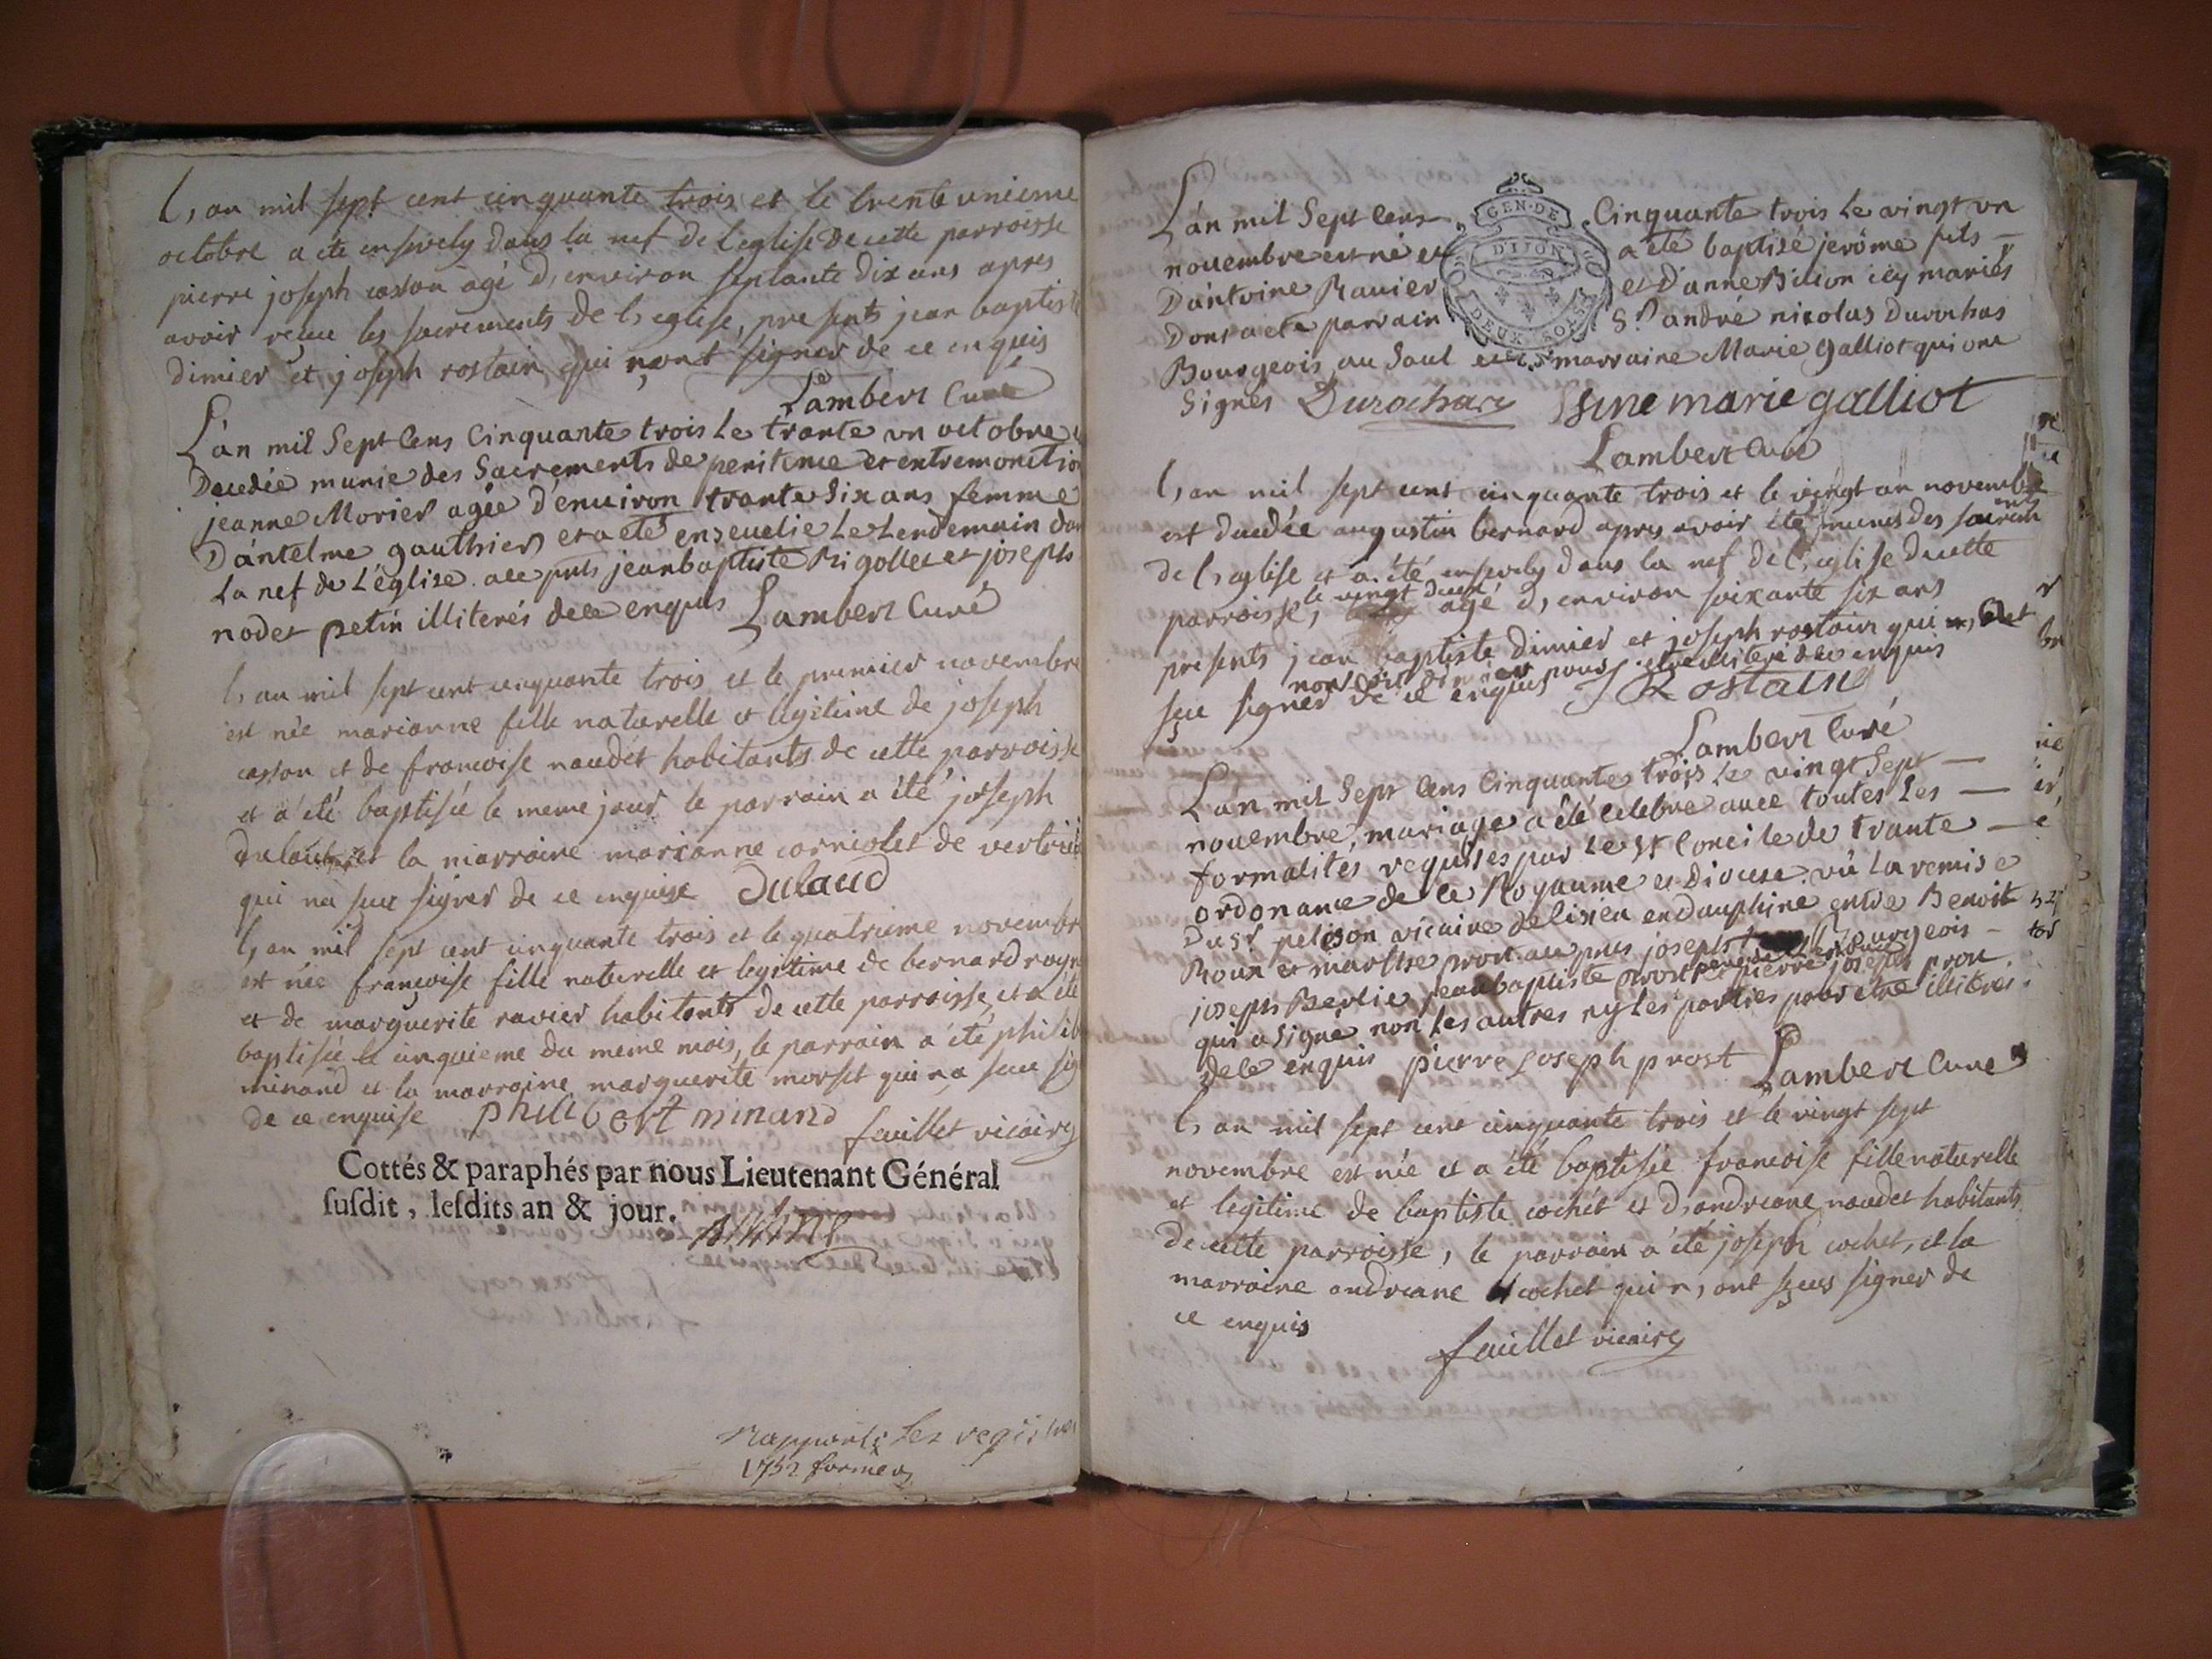 l, an mil sept cent cinquante trois et le trente unieme
octobre a ete ensevely dans la nef de l'eglise de cette parroisse
pierre joseph casson agé d, environ septante dix ans apres
avoir reçue les sacrements de l, eglise, presents jean baptiste
dimier et joseph rostain qui n,ont signer de ce enquis
Lambert Curé
L'an mil Sept Cens Cinquante trois Le trante un octobre
Decedée munie des Sacrements de penitence et extremonction
jeanne Morier agée d'enuiron trante Six ans femme
D'antelme gauthier et a eté enseuelie Le Lendemain dan
La nef de L'église. aux pnts jean baptiste Rigollet et joseph
nodet petin illiterés de ce enquis Lambert Curé
l, an mil sept cent cinquante trois et le premier novembre
est née marianne fille naturelle et legitime de joseph
casson et de francoise naudet habitants de cette parroisse
et a été baptisée le meme jour le parrain a été joseph
et la marraine marianne corniolet de vertrieu
qui na sceu signer de ce enquise Dulaud
l, an mil sept cent cinquante trois et le quatrieme novembre
est née françoise fille naturelle et legitime de bernard royn
et de marguerite ravier habitants de cette parroisse, et a été
baptisée le cinquieme du meme mois, le parrain a été philib
minand et la marraine marguerite morset qui n,a sceu sig
de ce enquise philibert minand
feuillet vicaire
Cottés & paraphés par nous Lieutenant Général
susdit, lesdits an & jour.
Rapporté Les registres
1752
GEN·DE
DIJON
DEUX SOLS
L'an mil Sept Cens Cinquante trois Le vingt un
nouembre est né et a été baptisé jerôme fils
D'antoine Rauier et D'anne Billon icy mariés
Dont a ete parrain Sr andré nicolas Durochas
Bourgeois au Saul et marraine Marie Galliot qui ont
Signés Durochas marie galliot
Lambert Curé
l, an mil sept cent cinquante trois et le vingt un novembre
est decedée augustin bernard apres avoir été munis des sacrements
de l, eglise et a été ensevely dans la nef de l, eglise de cette
parroisse, le vingt deux agé d, environ soixante six ans
presents jean baptiste dimier et joseph rostain qui
sçu signer de ce enquis pour être illiteré de ce enquis
Rostain
Lambert Curé
L'an mil Sept Cens Cinquante trois Le vingt Sept
nouembre, mariage a été celebre auec toutes Les
formalités requises par Le St Concile de trante
ordonance de ce Royaume et Diocese. vû La remise
Du Sr pelison vicaire de lisieu en dauphine entre Benoit
Roux et marthe prost. aux pnts joseph Bourgeois
joseph Berlie jean baptiste prost pere de pierre joseph prost
qui a Signé non Les autres ny Les parties pour etre illiterés
de ce enquis pierre joseph prost Lambert Curé
l, an mil sept cent cinquante trois et le vingt sept
novembre est née et a été baptisée francoise fille naturelle
et legitime de baptiste cochet et d, andreane naudet habitants
de cette parroisse, le parrain a été joseph cochet, et la
marraine andreane cochet qui n, ont sçeus signer de
ce enquis
feuillet vicaire